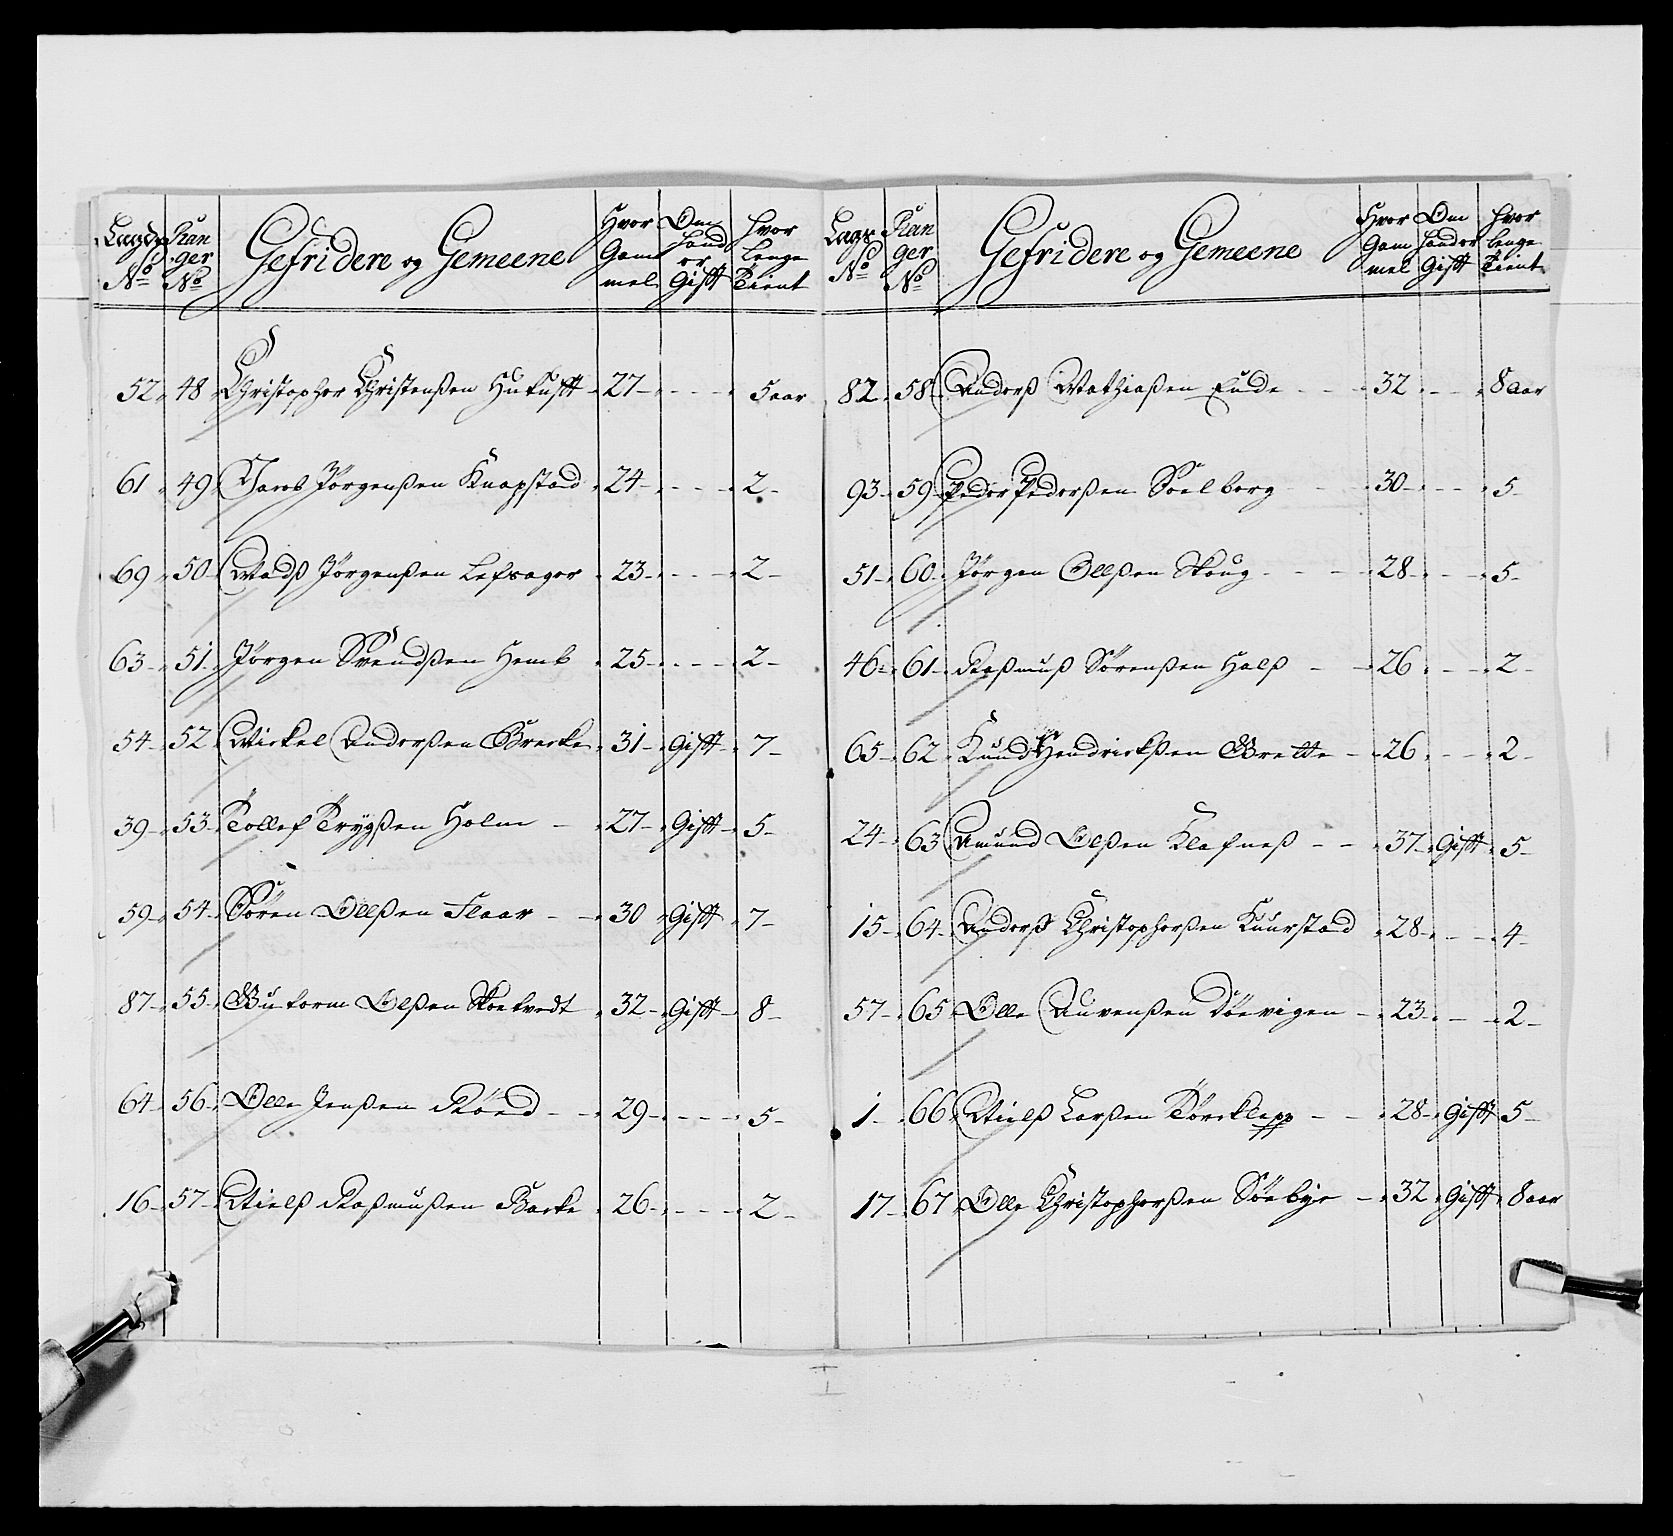 Lagds No Ran ger No Gefridere og Gemeene Hvor Gam mel Om hand er Gifft Hvor Lenge Tient
52 48 Christopher Christenßen Hukustt 27 5 aar
61 49 Jacob Jörgenßen Knapstad 24 2
69 50 Madß Jörgenßen Lefsager 23 2
63 51 Jörgen Svendßen Hemb 25 2
54 52 Mickel Anderßen Brecke 31 Gifft 7
39 53 Tollef Trygßen Holm 27 Gifft 5
59 54 Sören Ollßen Flaar 30 Gifft 7
87 55 Gutorm Olßen Skotvedt 32 Gifft 8
64 56 Olle Jenßen Röed 29 5
16 57 Nielß Raßmußen Barke 26 2
Lags No Ran ger No Gefridere og Gemeene Hvor Gam mel Om hand er Gifft Hvor lenge Tient
82 58 Anderß Mathiaßen Lunde 32 8 aar
93 59 Peder Pederßen Soelberg 30 5
51 60 Jörgen Ollßen Skoug 28 5
46 61 Raßmuß Sörenßen Halß 26 2
65 62 Knud Hendrickßen Grette 26 2
24 63 Amund Olßen Klefneß 37 Gifft 5
15 64 Anderß Christopherßen Kuurstad 28 4
57 65 Olle Auvenßen Döevigen 23 2
1 66 Nielß Larßen Törcklepp 28 Gifft 5
17 67 Olle Christopherßen Söebye 32 Gifft 8 aar